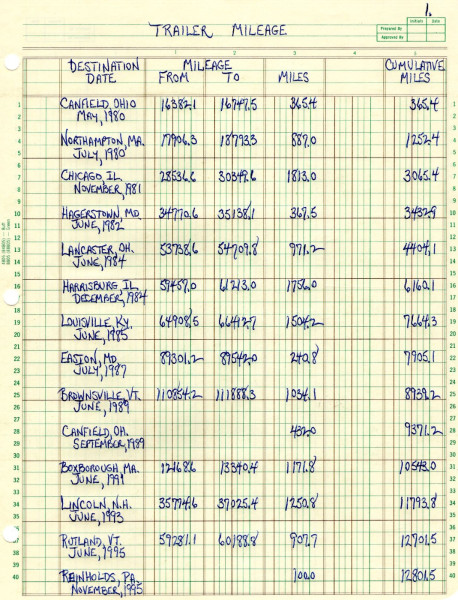 1.
Initials Date
Prepared By
Approved By
TRAILER MILEAGE
1 2 3 4 5
DESTINATION MILEAGE CUMULATIVE
DATE FROM TO MILES MILES
1 CANFIELD, OHIO 16382.1 16747.5 365.4 365.4 1
MAY, 1980
4 NORTHAMPTON, MA. 17906.3 18793.3 887.0 1252.4 4
JULY, 1980
7 CHICAGO, IL 28536.6 30349.6 1813.0 3065.4 7
NOVEMBER, 1981
10 HAGERSTOWN, MD. 34770.6 35138.1 367.5 3432.9 10
JUNE, 1982
13 LANCASTER, OH. 53738.6 54709.8 971.2 4404.1 13
JUNE, 1984
16 HARRISBURG, IL. 59457.0 61213.0 1756.0 6160.1 16
DECEMBER, 1984
19 LOUISVILLE, KY. 64908.5 66412.7 1504.2 7664.3 19
JUNE, 1985
22 EASTON, MD. 89301.2 89542.0 240.8 7905.1 22
JULY, 1987
25 BROWNSVILLE, VT. 110854.2 111888.3 1034.1 8939.2 25
JUNE, 1989
28 CANFIELD, OH. 432.0 9371.2 28
SEPTEMBER, 1989
31 BOXBOROUGH, MA. 12168.6 13340.4 1171.8 10543.0 31
JUNE, 1991
34 LINCOLN, N.H. 35774.6 37025.4 1250.8 11793.8 34
JUNE, 1993
37 RUTLAND, VT. 59281.1 60188.8 907.7 12701.5 37
JUNE, 1995
40 REINHOLDS, PA. 100.0 12801.5 40
NOVEMBER, 1995